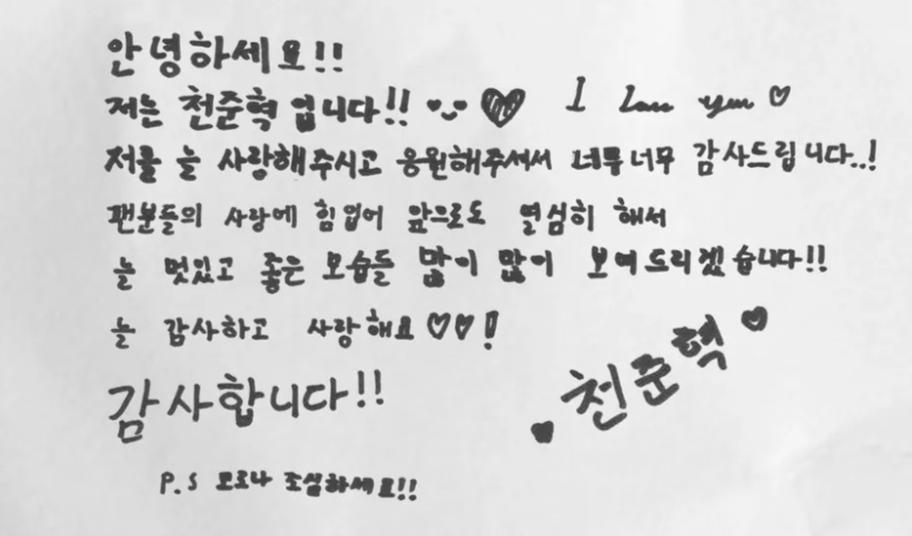 안녕하세요!!
저는 천준혁 입니다!! I love you ♡
저를 늘 사랑해주시고 응원해주셔서 너무너무 감사드립니다..!
팬분들의 사랑에 힘입어 앞으로도 열심히 해서
늘 멋있고 좋은 모습들 많이 많이 보여드리겠습니다!!
늘 감사하고 사랑해요♡♡!
감사합니다!!
♥천준혁♡
P.S 코로나 조심하세요!!